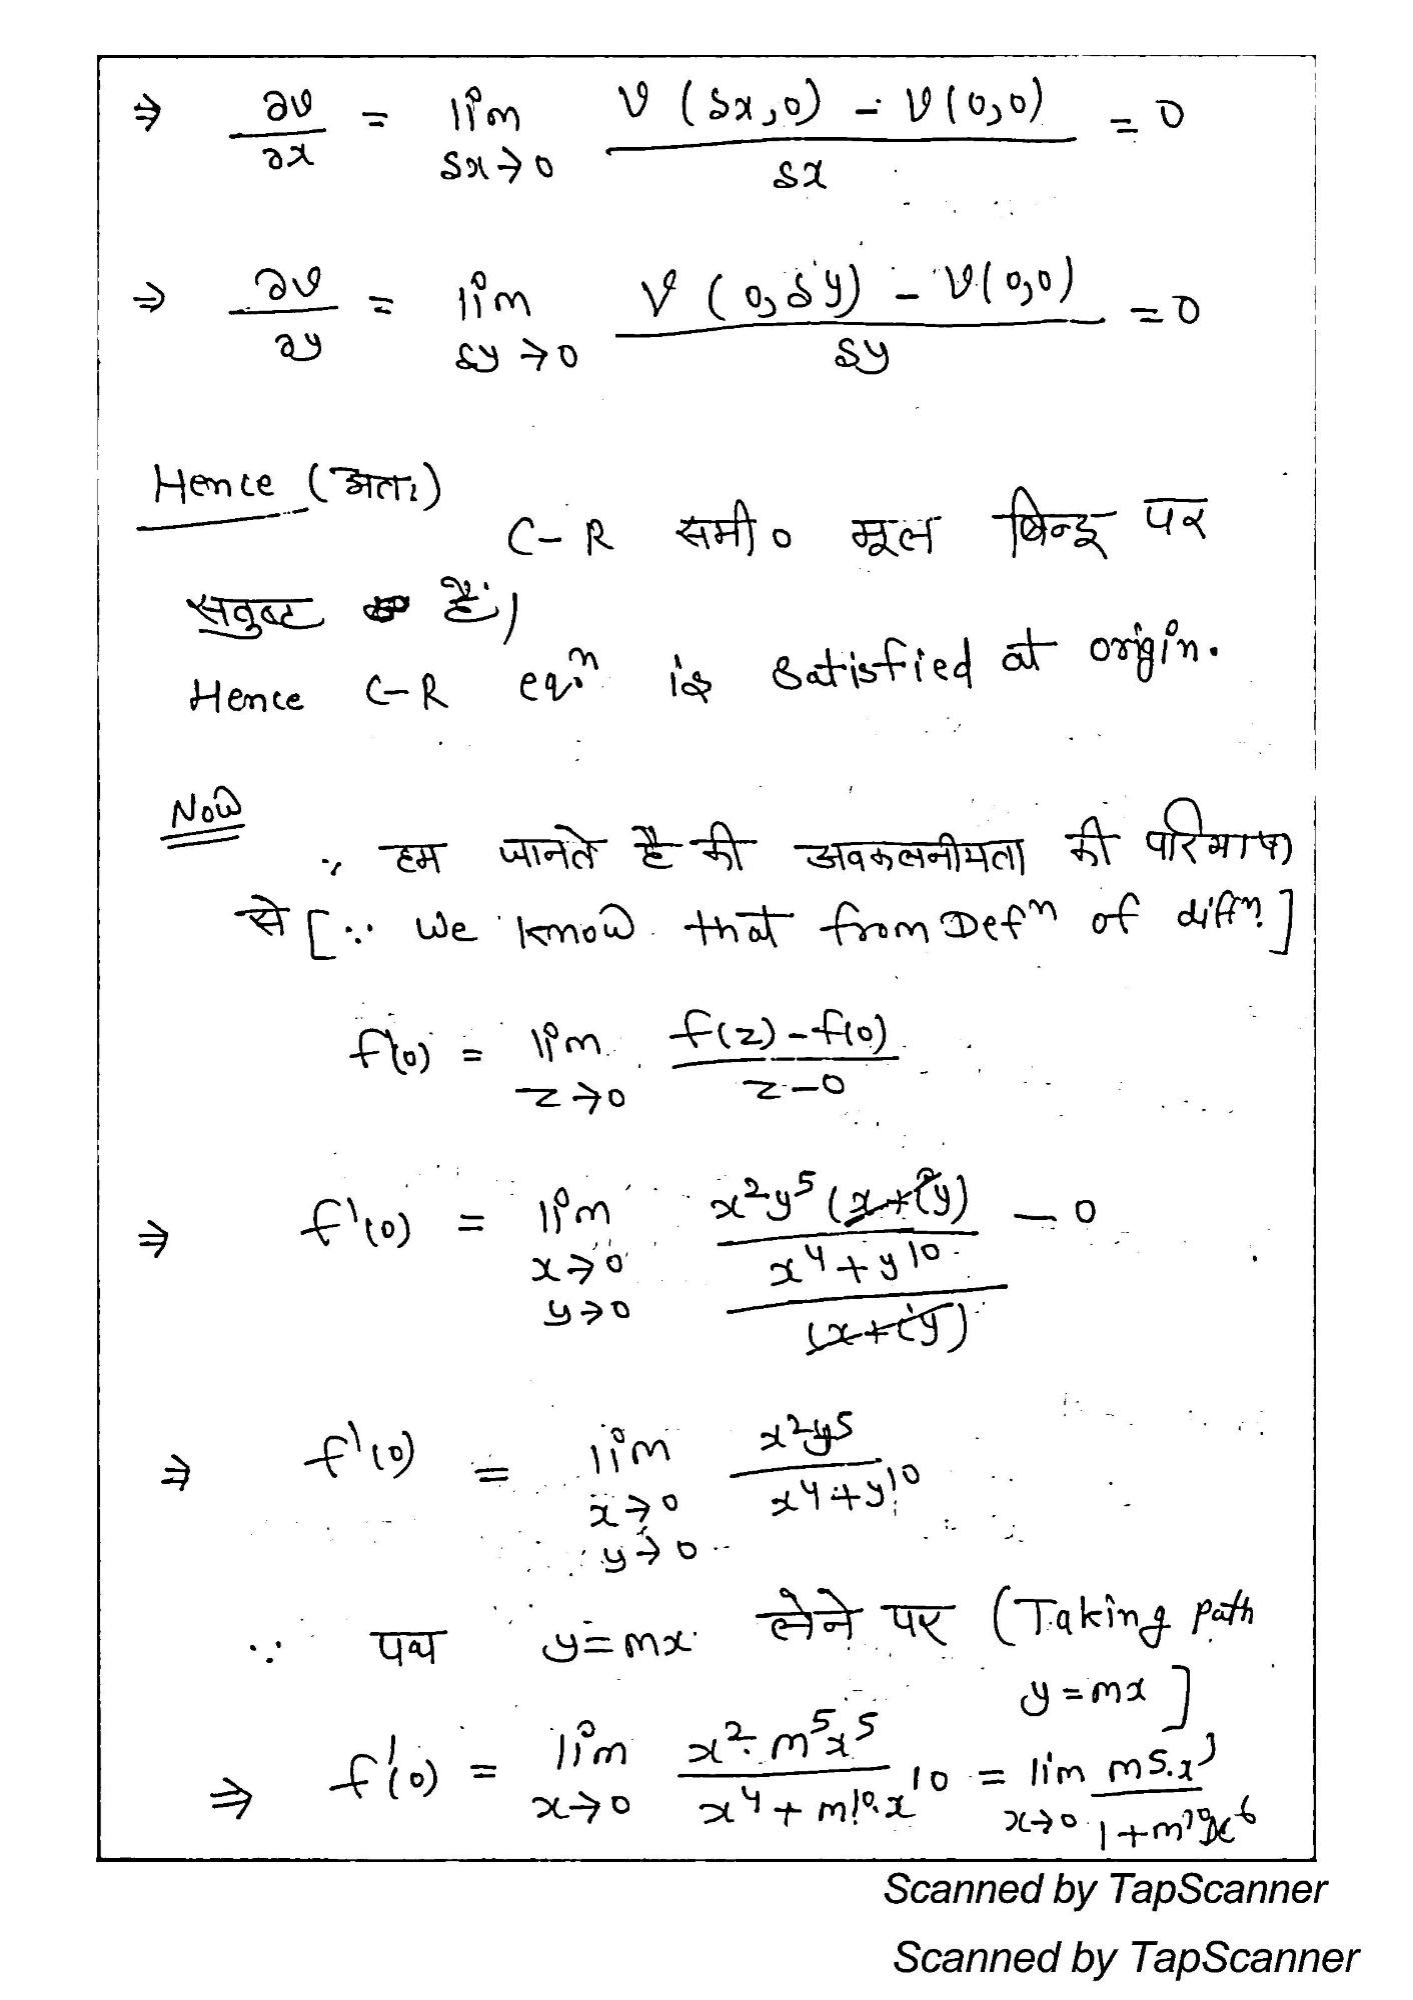 ⇒ ∂v/∂x = lim δx→0 (v(δx,0) - v(0,0))/δx = 0
⇒ ∂v/∂y = lim δy→0 (v(0,δy) - v(0,0))/δy = 0
Hence (अतः)
C-R समी० मूल बिन्दु पर
सतुष्ट हैं।
Hence C-R eqⁿ is satisfied at origin.
Now
∵ हम जानते है की अवकलनीयता की परिभाषा
से [∵ We know that from Defⁿ of diffⁿ.]
f'(0) = lim z→0 (f(z) - f(0))/(z-0)
⇒ f'(0) = lim x→0 y→0 (x²y⁵(x+iy)/(x⁴+y¹⁰) - 0)/(x+iy)
⇒ f'(0) = lim x→0 y→0 x²y⁵/(x⁴+y¹⁰)
∵ पथ y=mx लेने पर (Taking path
y=mx]
⇒ f'(0) = lim x→0 x².m⁵x⁵/(x⁴+m¹⁰.x¹⁰) = lim x→0 m⁵.x³/(1+m¹⁰x⁶)
Scanned by TapScanner
Scanned by TapScanner